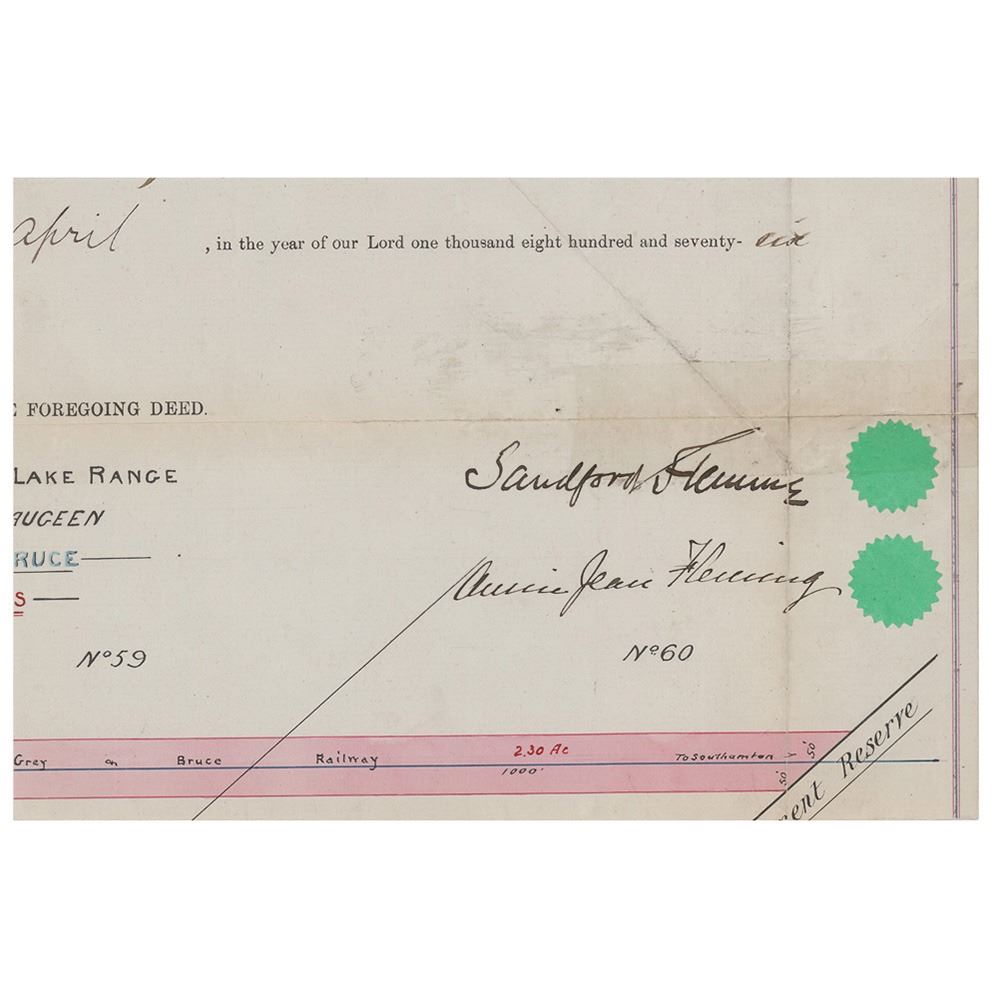 April , in the year of our Lord one thousand eight hundred and seventy- six
FOREGOING DEED.
LAKE RANGE
AUGEEN
RUCE
S
Sandford Fleming
Annie Jean Fleming
Nº59
Nº60
Grey on Bruce Railway 2.30 Ac To Southampton 50'
1000' 50'
ent Reserve